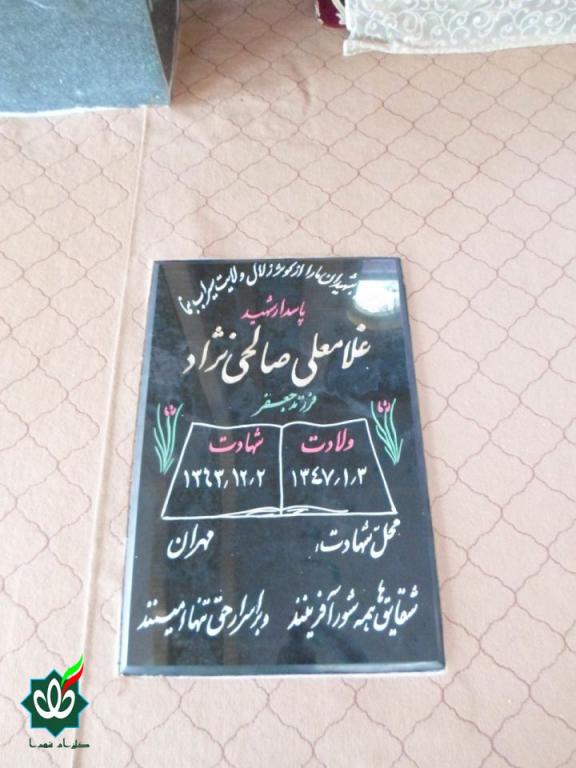 شهیدان ما را از کوثر زلال ولایت سیراب نما
پاسدار شهید
غلامعلی صالحی نژاد
فرزند جعفر
ولادت
۱۳۴۷٫۱٫۳
شهادت
۱۳۶۳٫۱۲٫۲
محل شهادت: مهران
شقایق‌ها همه شور آفرینند و بر اسرار حق تنها امینند
گلزار شهدا